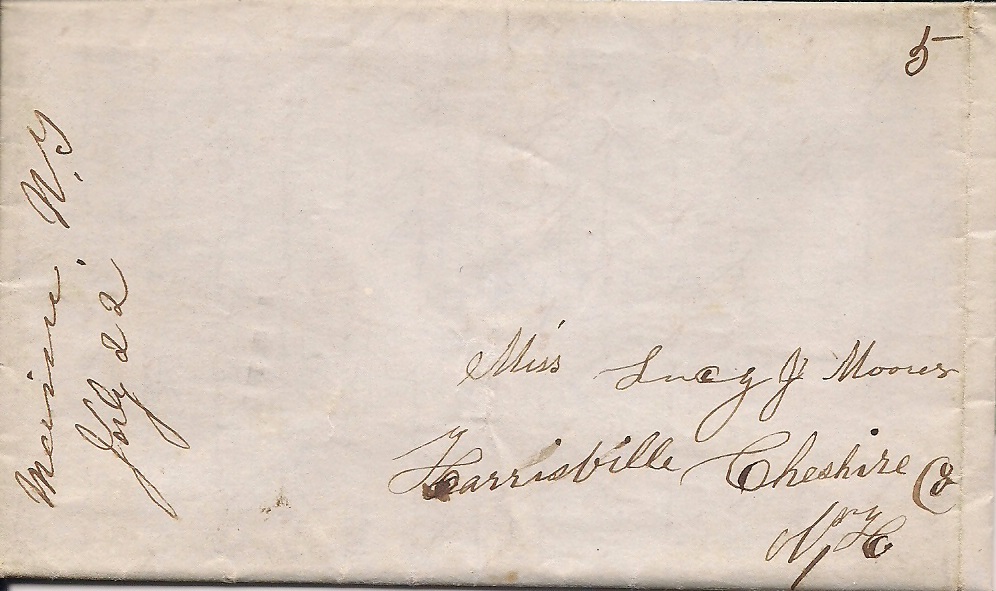 5
N.Y
July 22
Miss Lucy J Moores
Harrisville Cheshire Co
N, H